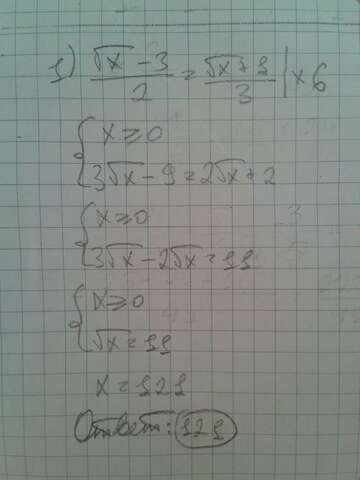 1) (√x - 3)/2 = (√x + 1)/3 | × 6
{ x ≥ 0
{ 3√x - 9 = 2√x + 2
{ x ≥ 0
{ 3√x - 2√x = 11
{ x ≥ 0
{ √x = 11
x = 121
Ответ: 121